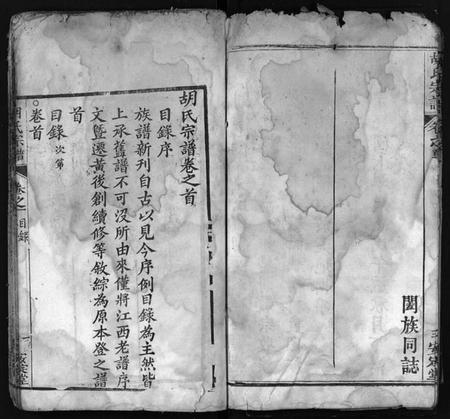 胡氏宗譜
安定堂
闔族同誌
胡氏宗譜卷之首
目錄序
族譜新刊自古以見今序例目錄為主然皆
上承舊譜不可沒所由來僅將江西老譜序
文暨遷黃後創續修等敘綜為原本登之譜
首
目錄次第
卷首
胡氏宗譜
卷之
目錄